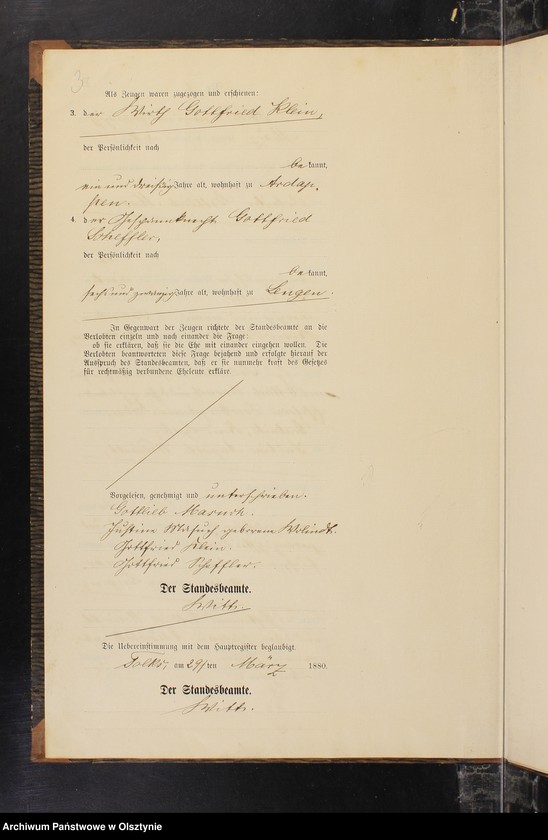 Als Zeugen waren zugezogen und erschienen:
3. der Wirth Gottfried Klein,
der Persönlichkeit nach
bekannt,
ein und dreißig Jahre alt, wohnhaft zu Ardap-
pen.
4. der Gespannknecht Gottfried
Scheffler,
der Persönlichkeit nach
bekannt,
sechs und zwanzig Jahre alt, wohnhaft zu Lengen.
In Gegenwart der Zeugen richtete der Standesbeamte an die
Verlobten einzeln und nach einander die Frage:
ob sie erklären, daß sie die Ehe mit einander eingehen wollen. Die
Verlobten beantworteten diese Frage bejahend und erfolgte hierauf der
Ausspruch des Standesbeamten, daß er sie nunmehr kraft des Gesetzes
für rechtmäßig verbundene Eheleute erkläre.
Vorgelesen, genehmigt und unterschrieben.
Gottlieb
Justine geborene
Gottfried Klein.
Gottfried Scheffler.
Der Standesbeamte.
Witt.
Die Uebereinstimmung mit dem Hauptregister beglaubigt.
am 29ten März 1880.
Der Standesbeamte.
Witt.
Archiwum Państwowe w Olsztynie